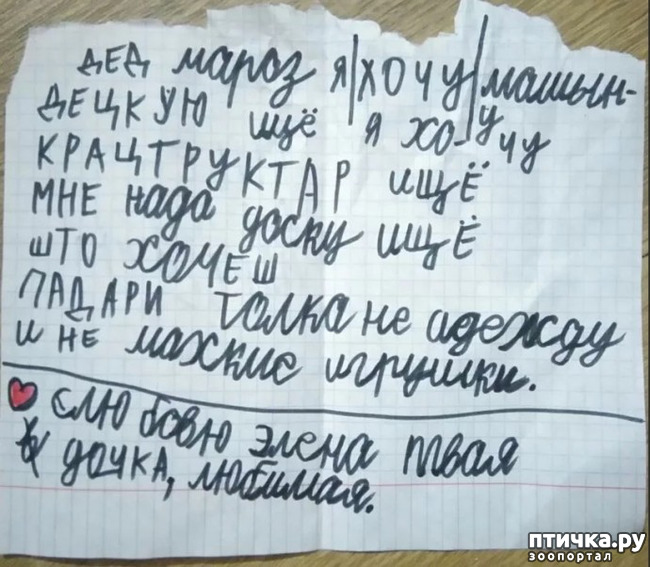 ДЕД мароз я|хочу|машын-
ДЕЦКУЮ ищё я хо- у чу
КРАЦТРУКТАР ИЩЁ
МНЕ нада доску ИЩЁ
ШТО ХОЧЕШ
ПАДАРИ толка не адежду
и не махкие игрушки.
слю бовю элена твая
дочка, любимая.
птичка.ру
зоопортал